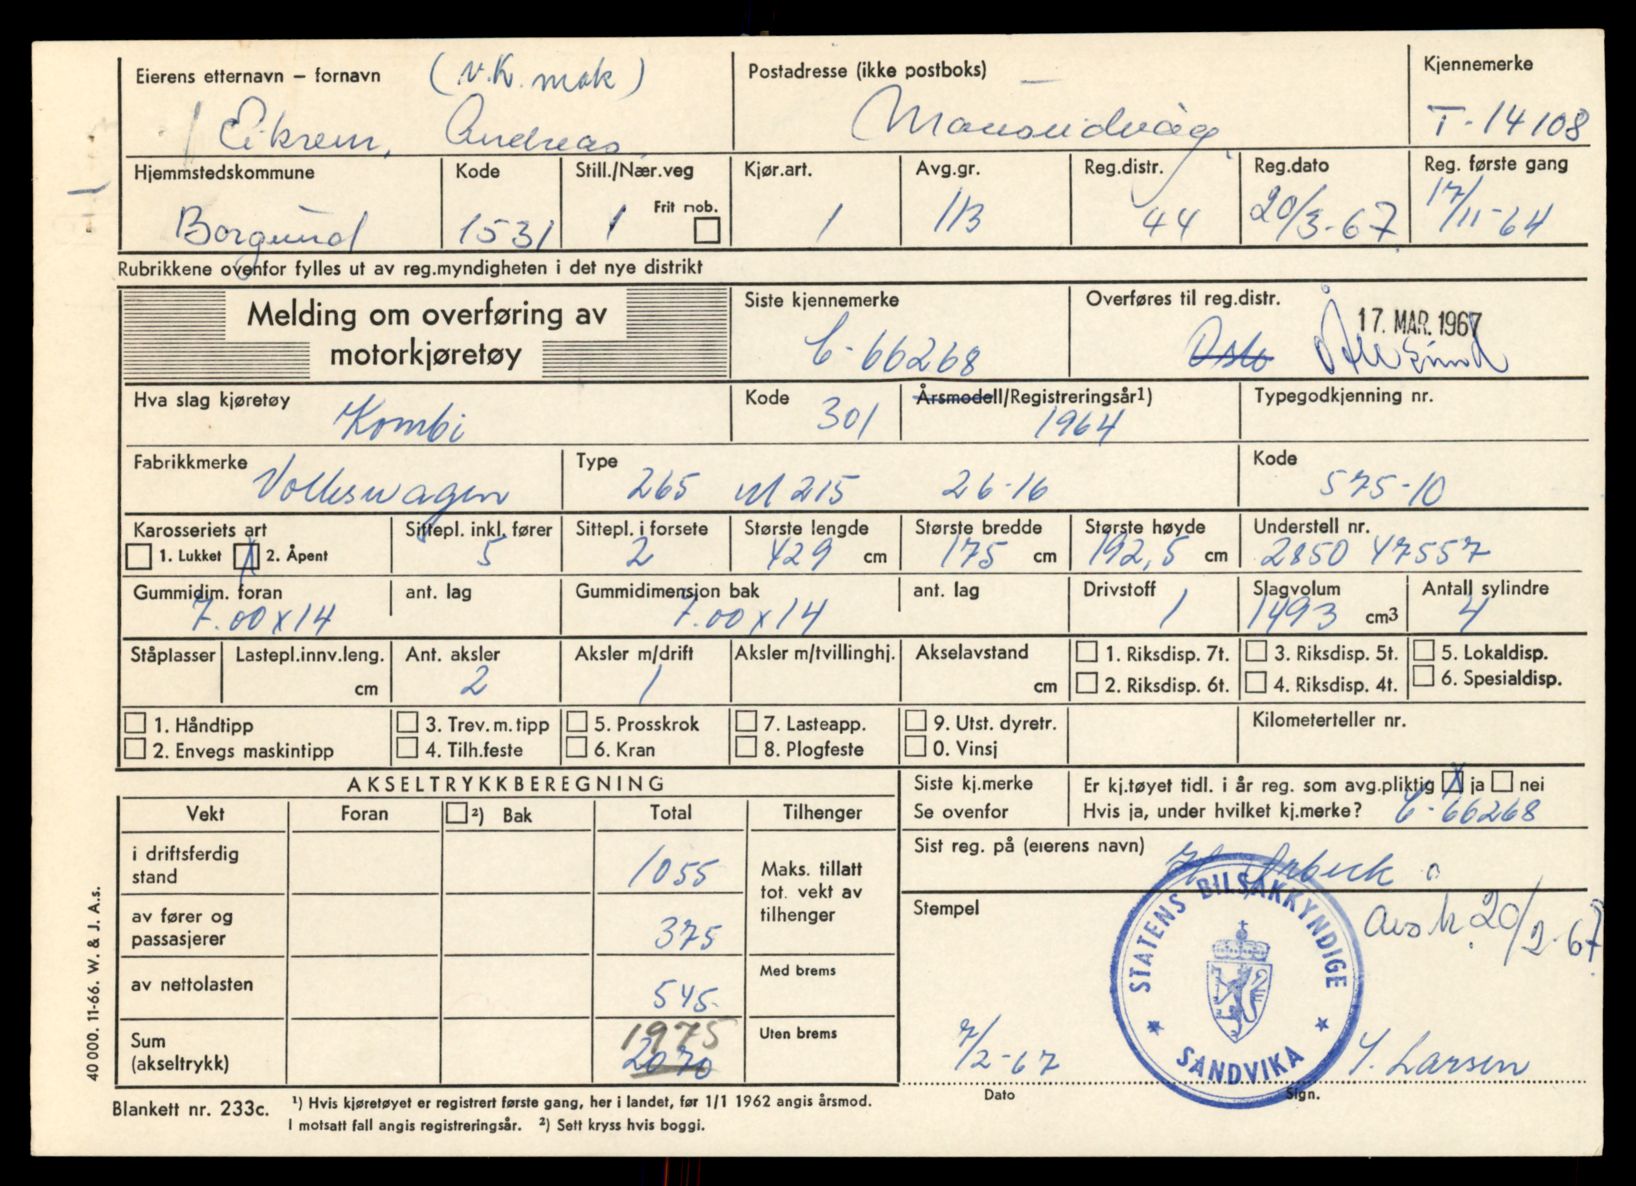 Eierens etternavn – fornavn (v.k. mak)
Eikrem, Andreas
Postadresse (ikke postboks)
Mauseidvåg
Kjennemerke
T-14108
Hjemmstedskommune
Borgund
Kode
1531
Still./Nær.veg
1
Frit mob.
Kjør.art.
1
Avg.gr.
113
Reg.distr.
44
Reg.dato
20/3-67
Reg. første gang
17/11-64
Rubrikkene ovenfor fylles ut av reg.myndigheten i det nye distrikt
Melding om overføring av
motorkjøretøy
Siste kjennemerke
C-66268
Overføres til reg.distr.
17. MAR. 1967
Oslo Ålesund
Hva slag kjøretøy
Kombi
Kode
301
Årsmodell/Registreringsår1)
1964
Typegodkjenning nr.
Fabrikkmerke
Volkswagen
Type
265 M 215 26-16
Kode
575-10
Karosseriets art
1. Lukket 2. Åpent
Sittepl. inkl. fører
5
Sittepl. i forsete
2
Største lengde
429 cm
Største bredde
175 cm
Største høyde
192,5 cm
Understell nr.
2850 47557
Gummidim. foran
7.00x14
ant. lag
Gummidimensjon bak
7.00x14
ant. lag
Drivstoff
1
Slagvolum
1493 cm3
Antall sylindre
4
Ståplasser
Lastepl.innv.leng.
cm
Ant. aksler
2
Aksler m/drift
1
Aksler m/tvillinghj.
Akselavstand
cm
1. Riksdisp. 7t.
2. Riksdisp. 6t.
3. Riksdisp. 5t.
4. Riksdisp. 4t.
5. Lokaldisp.
6. Spesialdisp.
1. Håndtipp
2. Envegs maskintipp
3. Trev. m. tipp
4. Tilh.feste
5. Prosskrok
6. Kran
7. Lasteapp.
8. Plogfeste
9. Utst. dyretr.
0. Vinsj
Kilometerteller nr.
AKSELTRYKKBEREGNING
Vekt Foran 2) Bak Total Tilhenger
i driftsferdig
stand
1055
av fører og
passasjerer
375
av nettolasten
545
Sum
(akseltrykk)
1975
2070
Maks. tillatt
tot. vekt av
tilhenger
Med brems
Uten brems
Siste kj.merke
Se ovenfor
Er kj.tøyet tidl. i år reg. som avg.pliktig ja nei
Hvis ja, under hvilket kj.merke? C-66268
Sist reg. på (eierens navn)
Stempel
20/2-67
STATENS BILSAKKYNDIGE
SANDVIKA
7/2-67
Dato
Y. Larsen
Sign.
40 000. 11-66. W. & J. A.s.
Blankett nr. 233c.
1) Hvis kjøretøyet er registrert første gang, her i landet, før 1/1 1962 angis årsmod.
I motsatt fall angis registreringsår. 2) Sett kryss hvis boggi.